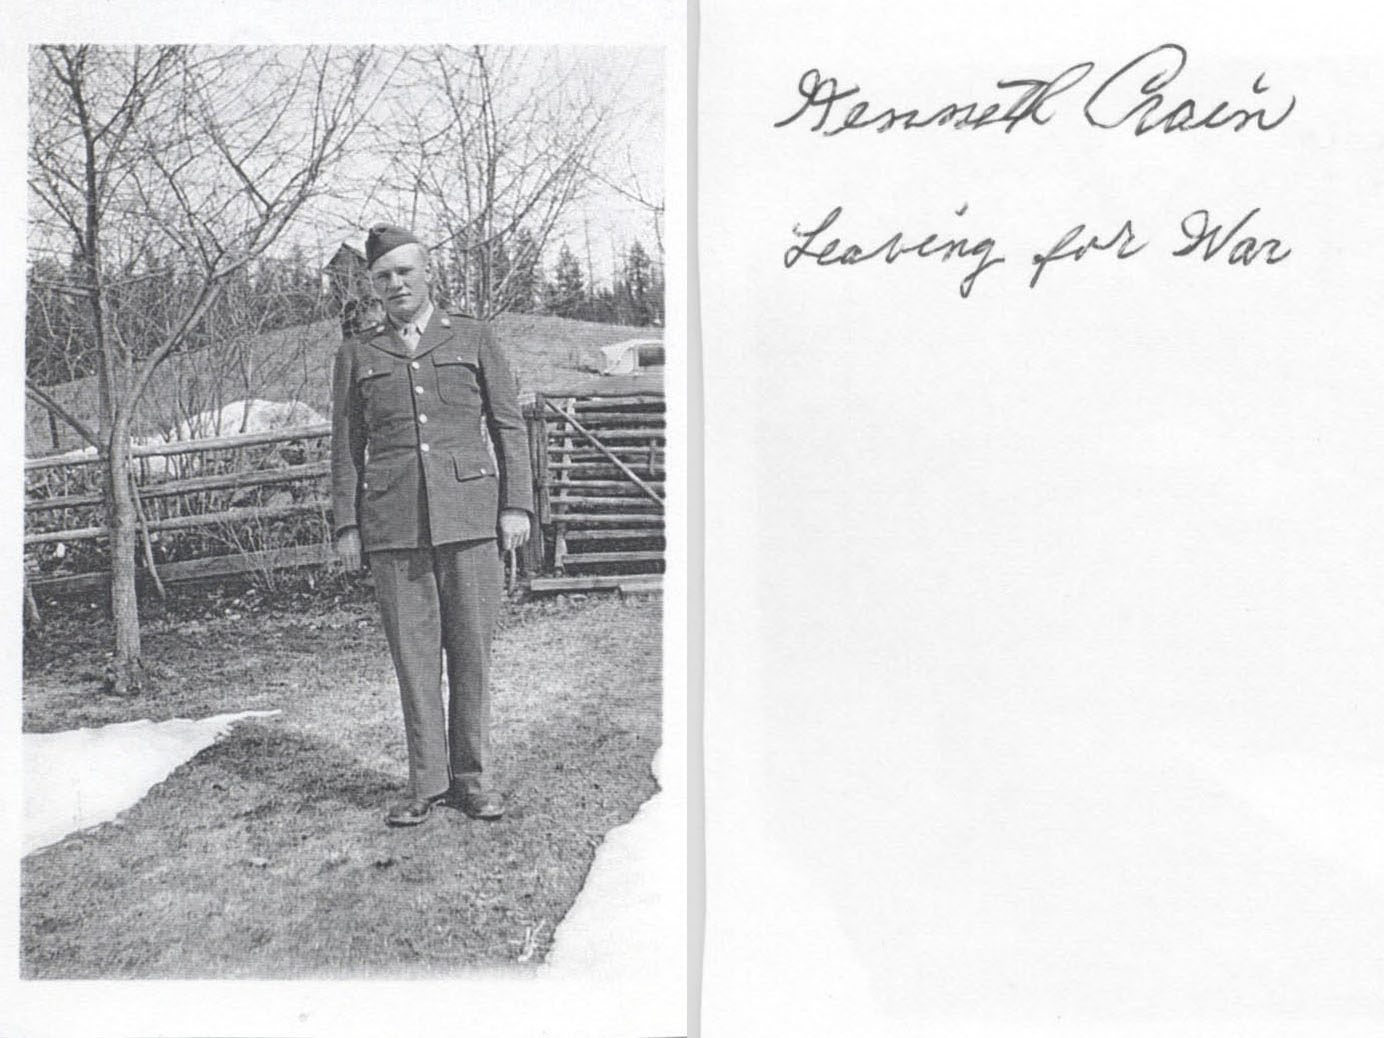 Kenneth Crain
Leaving for War